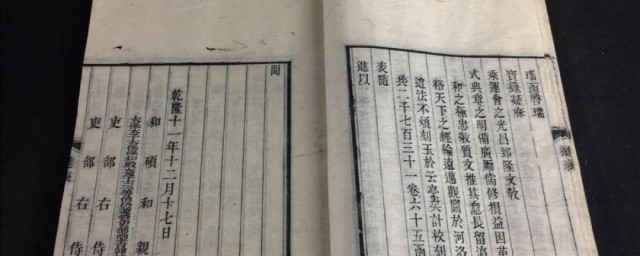 瑤函啓瑞
寶籙凝庥
乘運會之光昌郅隆文教
式典章之明備廣勵儒修損益因革
和之極忠敬質文推其長留
格天下之經綸遠邇觀於河洛
道法不煩刻玉於云亭計校刻
共二千七百三十一卷六十五函
表隨
進以
聞
乾隆十一年十二月十七日
和碩和親
吏部右侍
吏部右侍